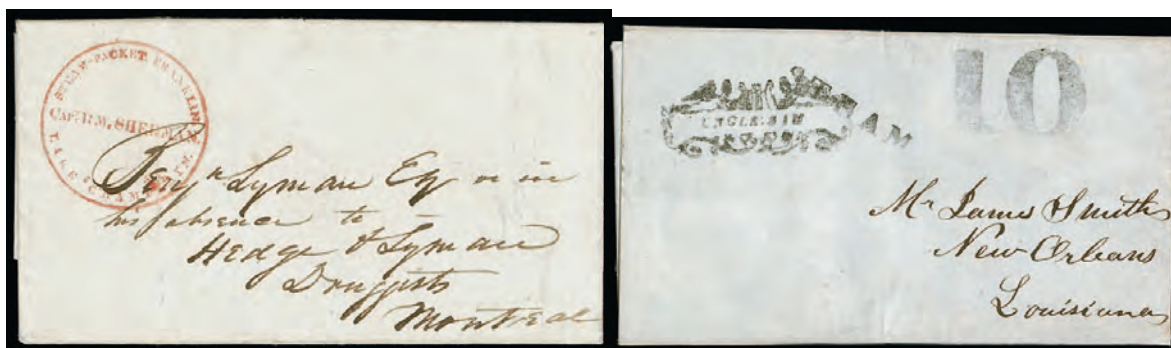 STEAM-PACKET FRANKLIN.
CAPT R.M. SHERMAN
LAKE CHAMPLAIN.
Benjn Lyman Eq or in
his absence to
Hedge & Lyman
Druggists
Montreal
UNCLE SAM
STEAM
10
Mr James Smith
New Orleans
Louisiana